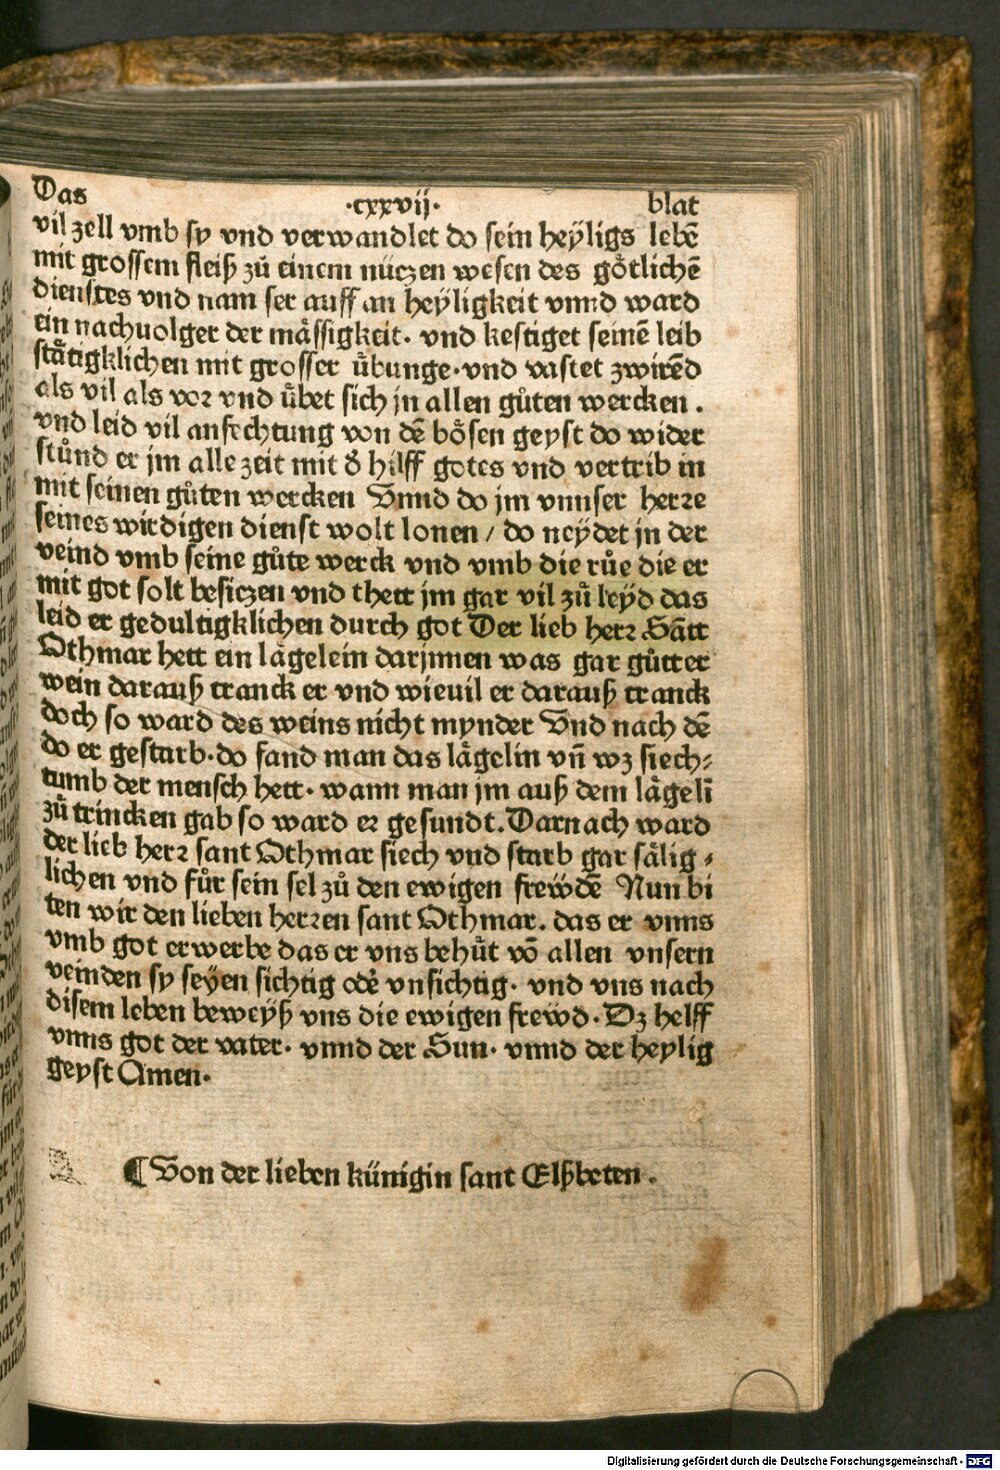 Das ·cxxvij· blat
vil zell vmb sy vnd verwandlet do sein heÿligs lebē
mit grossem fleiß zů einem nüczen wesen des gőtlichē
dienstes vnd nam ser auff an heÿligkeit vnnd ward
ein nachuolger der mässigkeit. vnd kestiget seinē leib
stätigklichen mit grosser übunge·vnd vastet zwirēd
als vil als vor vnd übet sich jn allen gůten wercken .
vnd leid vil anfechtung von dē bösen geyst do wider
stůnd er jm alle zeit mit d̕ hilff gotes vnd vertrib in
mit seinen gůten wercken Vnnd do jm vnnser herre
seines wirdigen dienst wolt lonen / do neÿdet jn der
veind vmb seine gůte werck vnd vmb die růe die er
mit got solt besiczen vnd thett jm gar vil zů leÿd das
leid er gedultigklichen durch got Der lieb herr Sātt
Othmar hett ein lägelein darjnnen was gar gůtter
wein darauß tranck er vnd wieuil er darauß tranck
doch so ward des weins nicht mynder Vnd nach dē
do er gestarb·do fand man das lägelin vn̄ wz siech⸗
tumb der mensch hett· wann man jm auß dem lägelī
zů trincken gab so ward er gesundt. Darnach ward
der lieb herr sant Othmar siech vnd starb gar sälig⸗
lichen vnd fůr sein sel zů den ewigen frewdē Nun bi
ten wir den lieben herren sant Othmar. das er vnns
vmb got erwerbe das er vns behůt vō allen vnsern
veinden sy seÿen sichtig od̕e vnsichtig· vnd vns nach
disem leben beweÿß vns die ewigen frewd· Dz helff
vnns got der vater· vnnd der Sun· vnnd der heylig
geyst Amen·
¶ Von der lieben künigin sant Elßbeten .
Digitalisierung gefördert durch die Deutsche Forschungsgemeinschaft - DFG